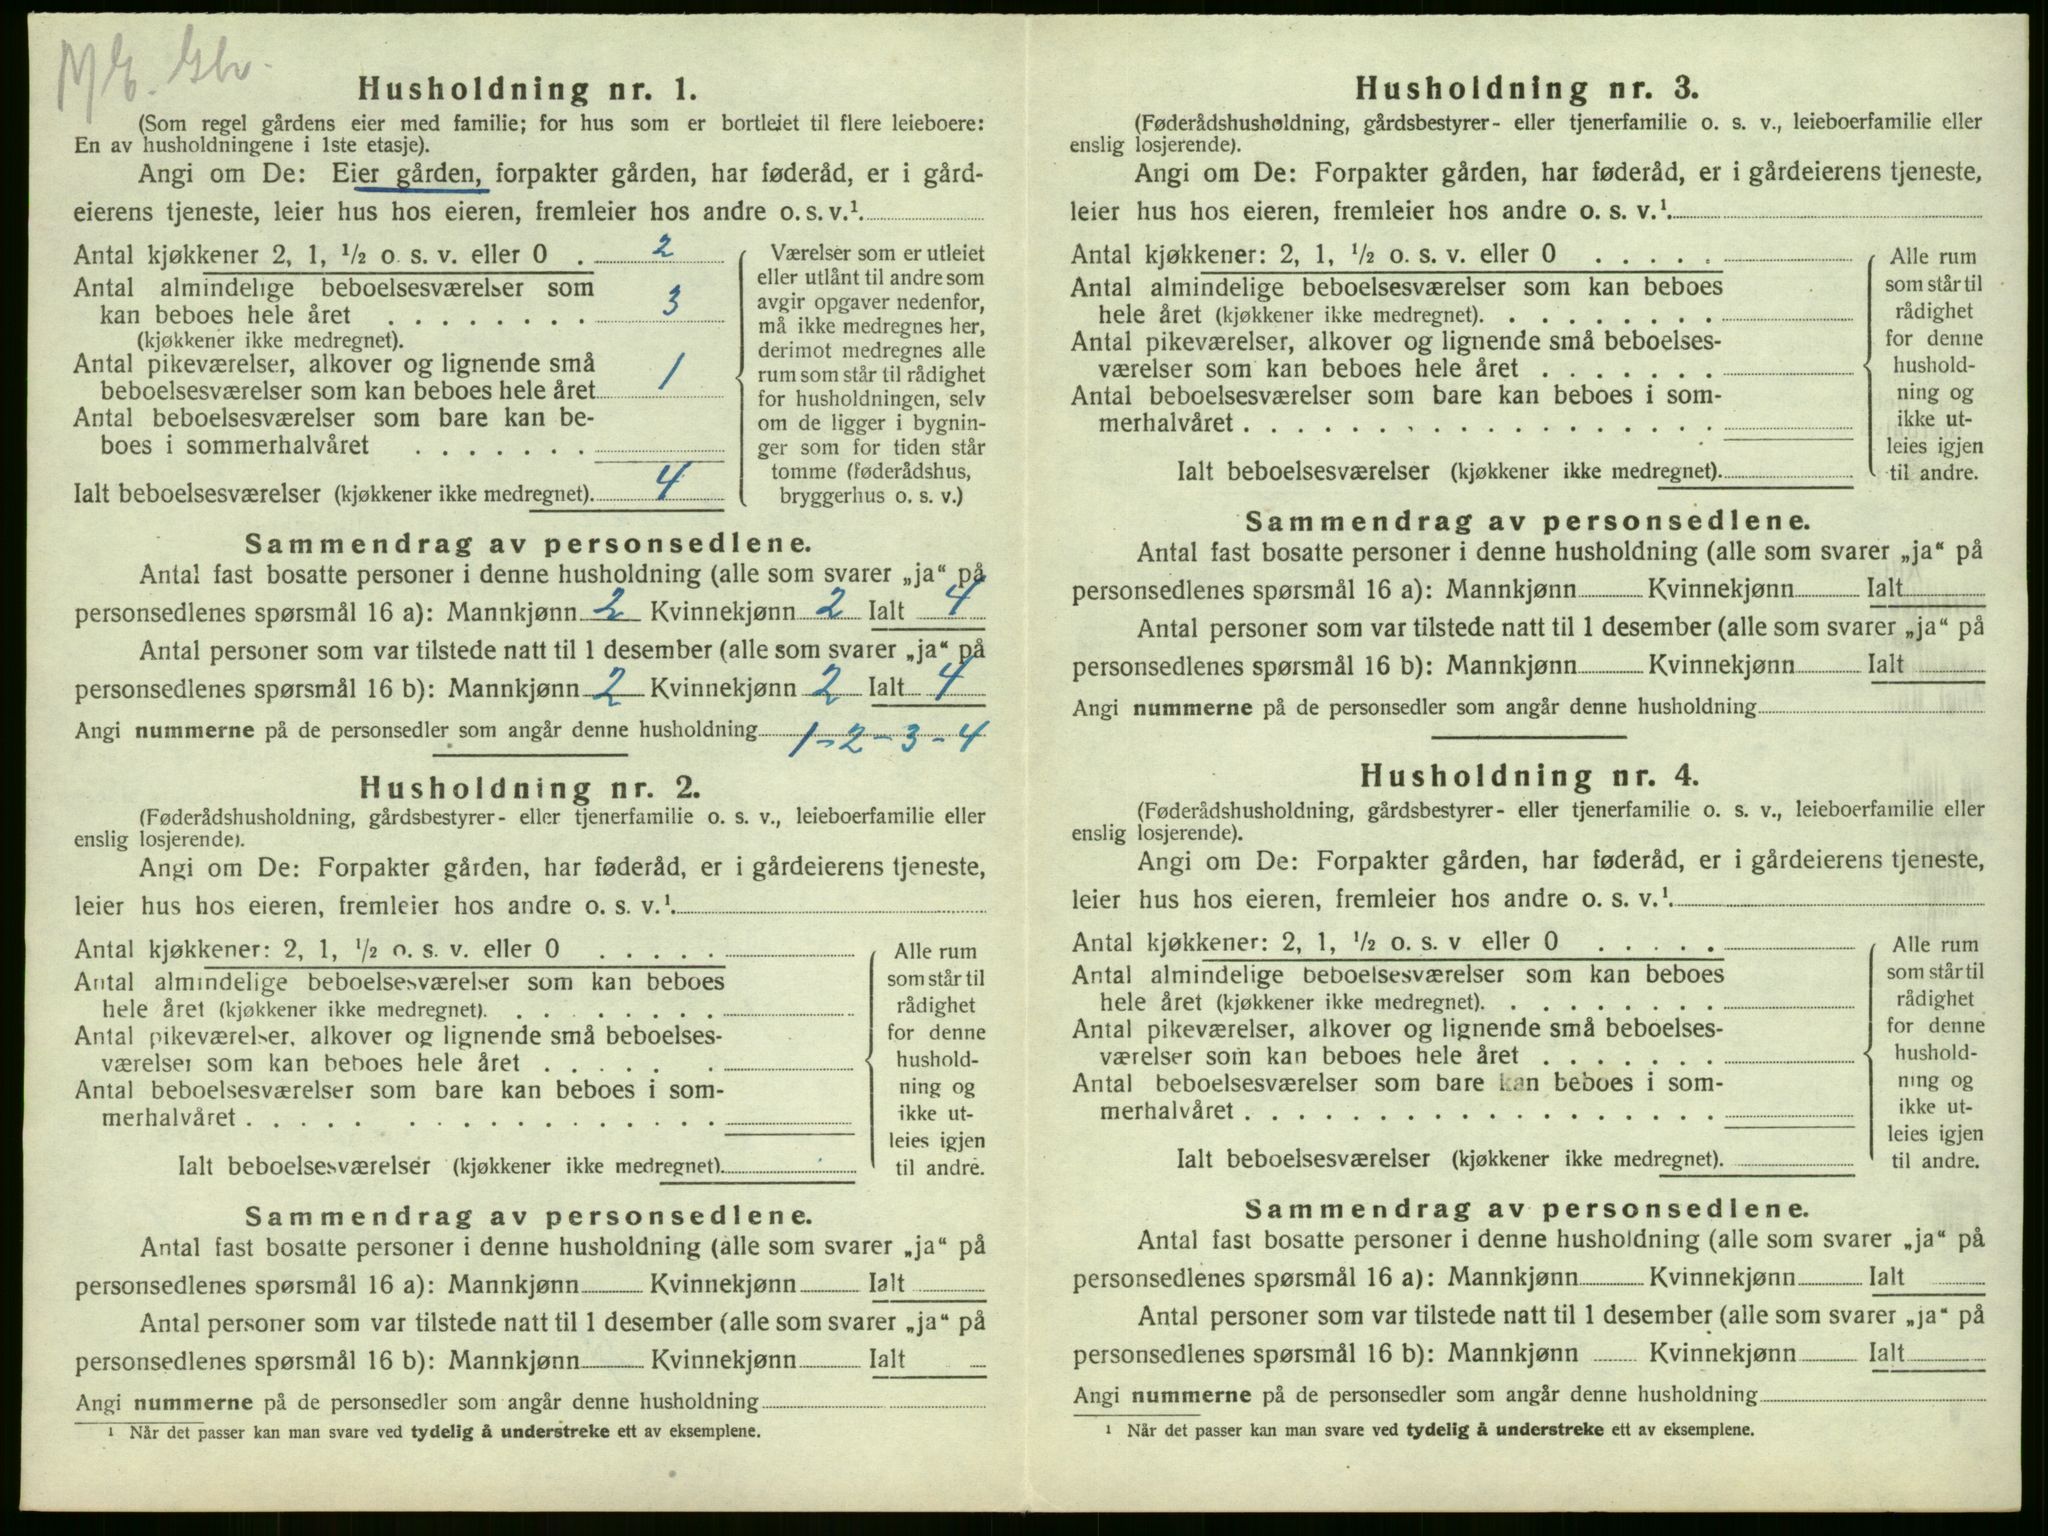 Husholdning nr. 1.
(Som regel gårdens eier med familie; for hus som er bortleiet til flere leieboere:
En av husholdningene i 1ste etasje).
Angi om De: Eier gården, forpakter gården, har føderåd, er i gård-
eierens tjeneste, leier hus hos eieren, fremleier hos andre o. s. v.¹.
Antal kjøkkener 2, 1, ½ o. s. v. eller 0 . 2
Antal almindelige beboelsesværelser som
kan beboes hele året . . . . . . . . 3
(kjøkkener ikke medregnet).
Antal pikeværelser, alkover og lignende små
beboelsesværelser som kan beboes hele året 1
Antal beboelsesværelser som bare kan be-
boes i sommerhalvåret . . . . . . .
Ialt beboelsesværelser (kjøkkener ikke medregnet). 4
Værelser som er utleiet
eller utlånt til andre som
avgir opgaver nedenfor,
må ikke medregnes her,
derimot medregnes alle
rum som står til rådighet
for husholdningen, selv
om de ligger i bygnin-
ger som for tiden står
tomme (føderådshus,
bryggerhus o. s. v.)
Sammendrag av personsedlene.
Antal fast bosatte personer i denne husholdning (alle som svarer „ja“ på
personsedlenes spørsmål 16 a): Mannkjønn 2 Kvinnekjønn 2 Ialt 4
Antal personer som var tilstede natt til 1 desember (alle som svarer „ja“ på
personsedlenes spørsmål 16 b): Mannkjønn 2 Kvinnekjønn 2 Ialt 4
Angi nummerne på de personsedler som angår denne husholdning 1-2-3-4
Husholdning nr. 2.
(Føderådshusholdning, gårdsbestyrer- eller tjenerfamilie o. s. v., leieboerfamilie eller
enslig losjerende).
Angi om De: Forpakter gården, har føderåd, er i gårdeierens tjeneste,
leier hus hos eieren, fremleier hos andre o. s. v.¹.
Antal kjøkkener: 2, 1, ½ o. s. v. eller 0 . . . . .
Antal almindelige beboelsesværelser som kan beboes
hele året (kjøkkener ikke medregnet). . . . . . . .
Antal pikeværelser, alkover og lignende små beboelses-
værelser som kan beboes hele året . . . . . .
Antal beboelsesværelser som bare kan beboes i som-
merhalvåret . . . . . . . . . . . . . . . . .
Ialt beboelsesværelser (kjøkkener ikke medregnet).
Alle rum
som står til
rådighet
for denne
hushold-
ning og
ikke ut-
leies igjen
til andre.
Sammendrag av personsedlene.
Antal fast bosatte personer i denne husholdning (alle som svarer „ja“ på
personsedlenes spørsmål 16 a): Mannkjønn Kvinnekjønn Ialt
Antal personer som var tilstede natt til 1 desember (alle som svarer „ja“ på
personsedlenes spørsmål 16 b): Mannkjønn Kvinnekjønn Ialt
Angi nummerne på de personsedler som angår denne husholdning
¹ Når det passer kan man svare ved tydelig å understreke ett av eksemplene.
Husholdning nr. 3.
(Føderådshusholdning, gårdsbestyrer- eller tjenerfamilie o. s. v., leieboerfamilie eller
enslig losjerende).
Angi om De: Forpakter gården, har føderåd, er i gårdeierens tjeneste,
leier hus hos eieren, fremleier hos andre o. s. v.¹.
Antal kjøkkener: 2, 1, ½ o. s. v. eller 0 . . . . .
Antal almindelige beboelsesværelser som kan beboes
hele året (kjøkkener ikke medregnet). . . . . . . . .
Antal pikeværelser, alkover og lignende små beboelses-
værelser som kan beboes hele året . . . . . . .
Antal beboelsesværelser som bare kan beboes i som-
merhalvåret . . . . . . . . . . . . . . . . . .
Ialt beboelsesværelser (kjøkkener ikke medregnet).
Alle rum
som står til
rådighet
for denne
hushold-
ning og
ikke ut-
leies igjen
til andre.
Sammendrag av personsedlene.
Antal fast bosatte personer i denne husholdning (alle som svarer „ja“ på
personsedlenes spørsmål 16 a): Mannkjønn Kvinnekjønn Ialt
Antal personer som var tilstede natt til 1 desember (alle som svarer „ja“ på
personsedlenes spørsmål 16 b): Mannkjønn Kvinnekjønn Ialt
Angi nummerne på de personsedler som angår denne husholdning
Husholdning nr. 4.
(Føderådshusholdning, gårdsbestyrer- eller tjenerfamilie o. s. v., leieboerfamilie eller
enslig losjerende).
Angi om De: Forpakter gården, har føderåd, er i gårdeierens tjeneste,
leier hus hos eieren, fremleier hos andre o. s. v.¹.
Antal kjøkkener: 2, 1, ½ o. s. v eller 0 . . . . .
Antal almindelige beboelsesværelser som kan beboes
hele året (kjøkkener ikke medregnet). . . . . . . . .
Antal pikeværelser, alkover og lignende små beboelses-
værelser som kan beboes hele året . . . . . . .
Antal beboelsesværelser som bare kan beboes i som-
merhalvåret . . . . . . . . . . . . . . . . . .
Ialt beboelsesværelser (kjøkkener ikke medregnet).
Alle rum
som står til
rådighet
for denne
hushold-
ning og
ikke ut-
leies igjen
til andre.
Sammendrag av personsedlene.
Antal fast bosatte personer i denne husholdning (alle som svarer „ja“ på
personsedlenes spørsmål 16 a): Mannkjønn Kvinnekjønn Ialt
Antal personer som var tilstede natt til 1 desember (alle som svarer „ja“ på
personsedlenes spørsmål 16 b): Mannkjønn Kvinnekjønn Ialt
Angi nummerne på de personsedler som angår denne husholdning
¹ Når det passer kan man svare ved tydelig å understreke ett av eksemplene.